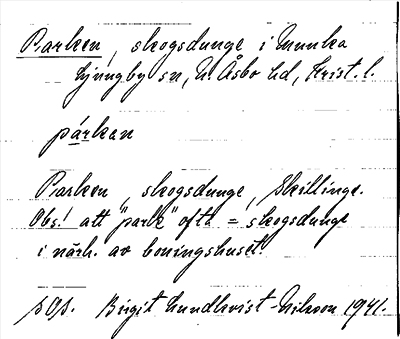 Parken, skogsdunge i Munka
Ljungby sn, N. Åsbo hd, Krist. l.
párkan
Parken, skogsdunge, Skillinge.
Obs.! att "park" ofta = skogsdunge
i närh. av boningshuset.
Birgit Lundkvist-Nilsson 1941.